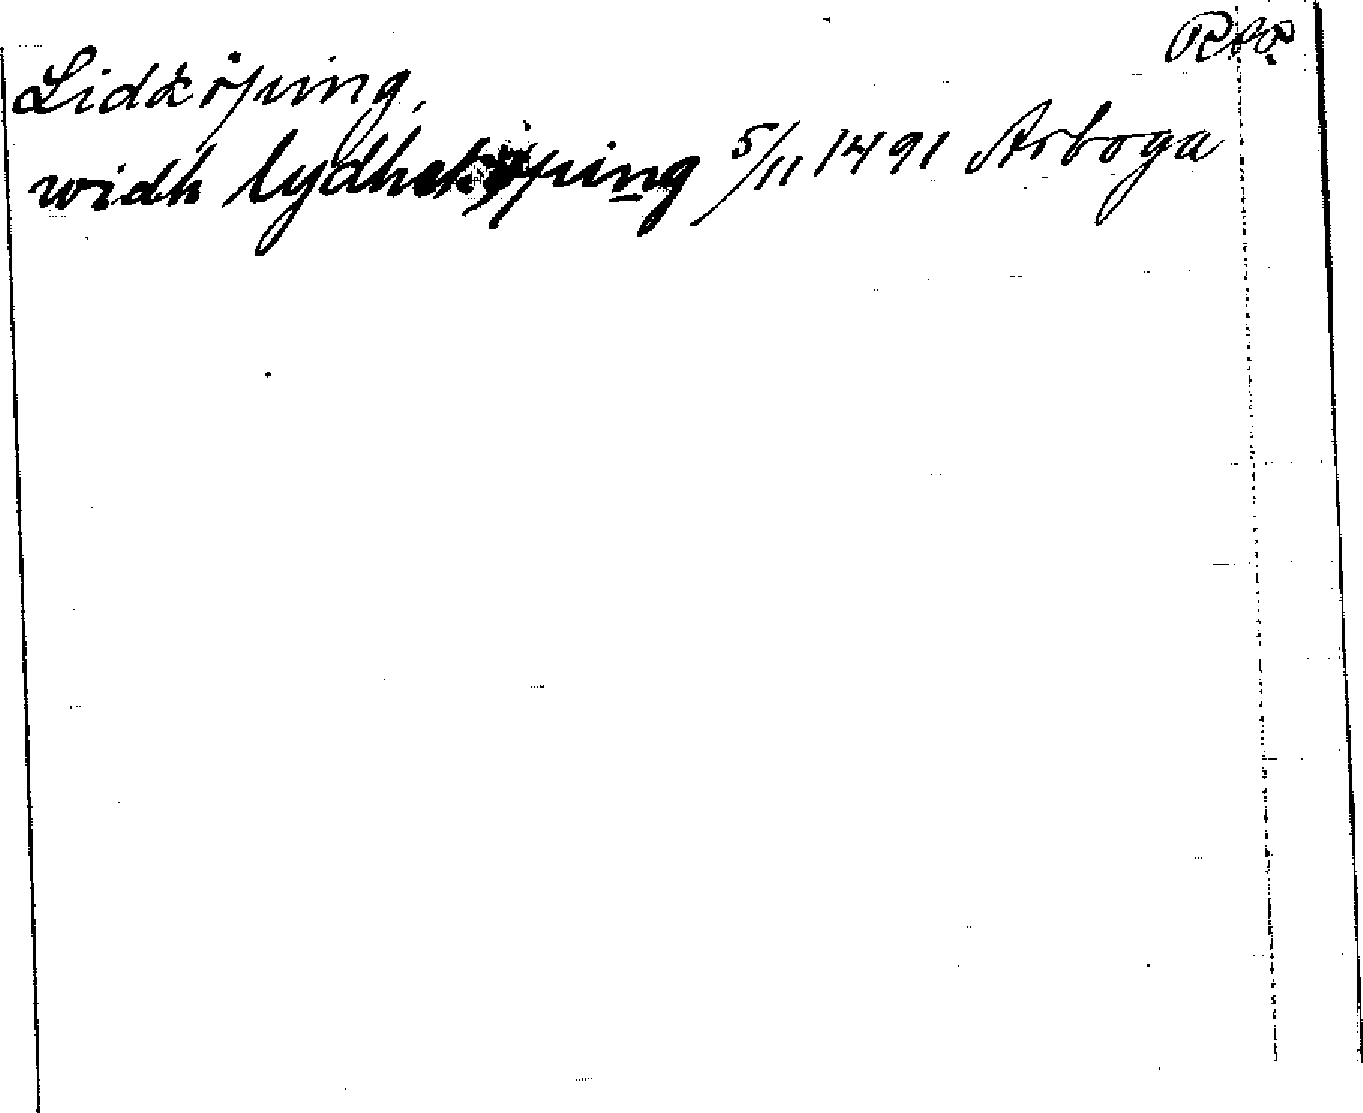 Lidköping,
widh lydheköping 5/11 1491 Arboga